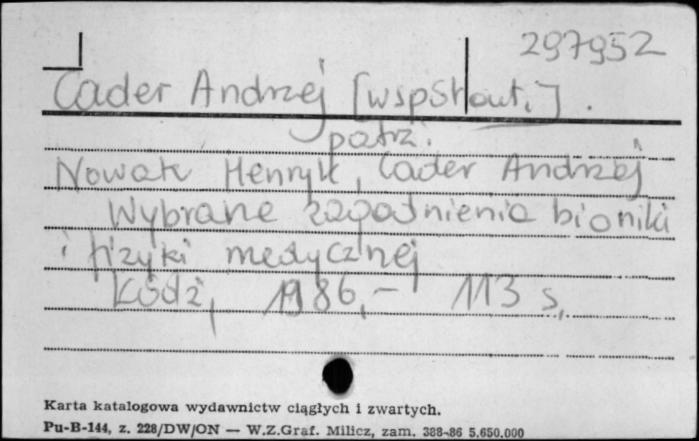 297952
Cader Andrzej [współaut.].
patrz.
Nowak Henryk, Cader Andrzej
Wybrane zagadnienia bioniki
i fizyki medycznej
Łódź, 1986,- 113 s.
Karta katalogowa wydawnictw ciągłych i zwartych.
Pu-B-144, z. 228/DW/ON — W.Z.Graf. Milicz, zam. 388-86 5.650.000